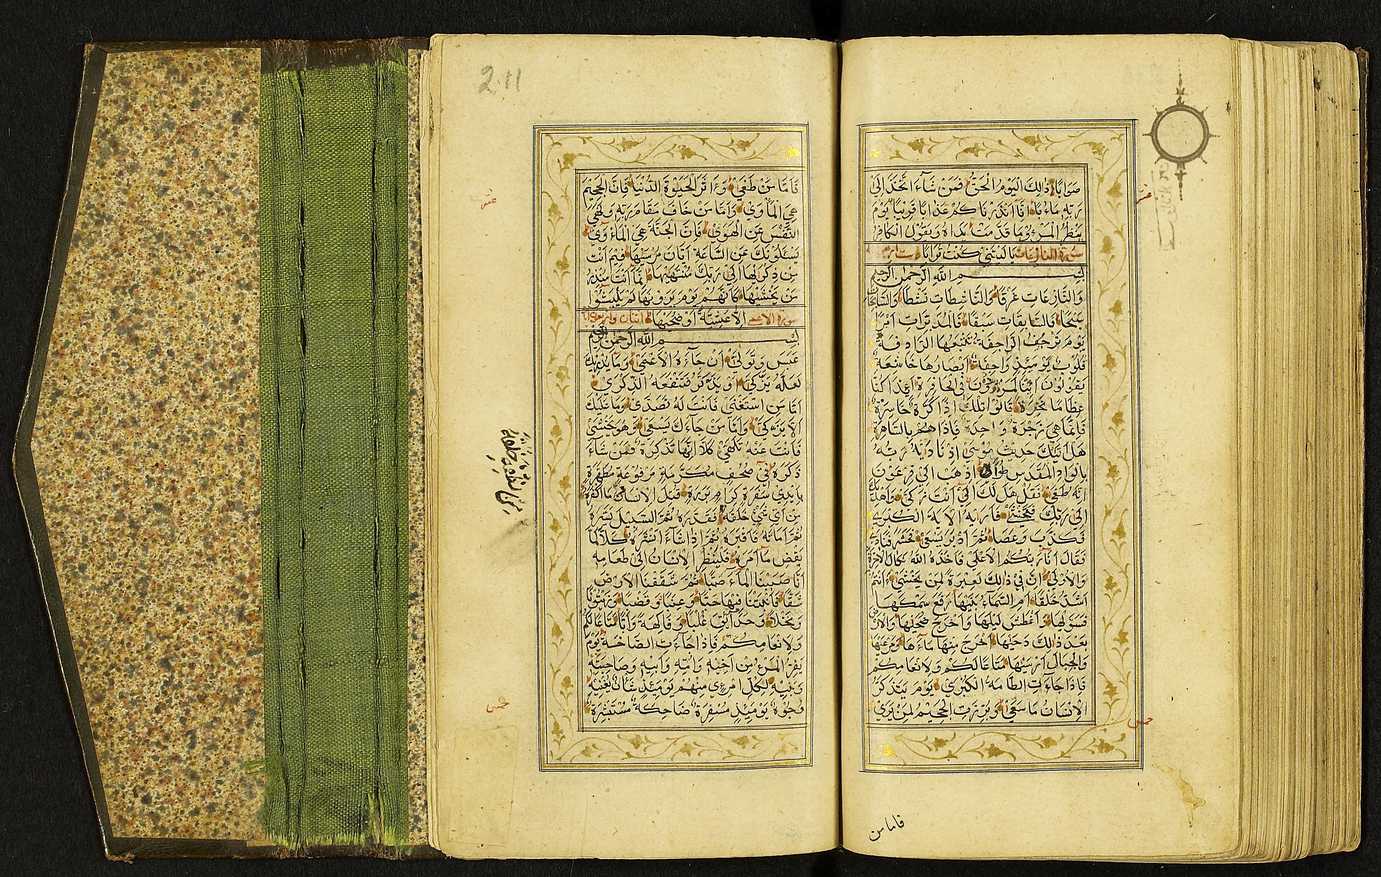 صَوَابًا ذٰلِكَ الْيَوْمُ الْحَقُّ فَمَنْ شَاءَ اتَّخَذَ اِلٰى
رَبِّهِ مَاٰبًا اِنَّا اَنْذَرْنَاكُمْ عَذَابًا قَرِيبًا يَوْمَ
يَنْظُرُ الْمَرْءُ مَا قَدَّمَتْ يَدَاهُ وَيَقُولُ الْكَافِرُ
سورة النازعات يَا لَيْتَنِي كُنْتُ تُرَابًا
بِسْمِ اللّٰهِ الرَّحْمٰنِ الرَّحِيمِ
وَالنَّازِعَاتِ غَرْقًا وَالنَّاشِطَاتِ نَشْطًا وَالسَّابِحَاتِ
سَبْحًا فَالسَّابِقَاتِ سَبْقًا فَالْمُدَبِّرَاتِ اَمْرًا
يَوْمَ تَرْجُفُ الرَّاجِفَةُ تَتْبَعُهَا الرَّادِفَةُ
قُلُوبٌ يَوْمَئِذٍ وَاجِفَةٌ اَبْصَارُهَا خَاشِعَةٌ
يَقُولُونَ اَئِنَّا لَمَرْدُودُونَ فِي الْحَافِرَةِ ءَاِذَا كُنَّا
عِظَامًا نَخِرَةً قَالُوا تِلْكَ اِذًا كَرَّةٌ خَاسِرَةٌ
فَاِنَّمَا هِيَ زَجْرَةٌ وَاحِدَةٌ فَاِذَا هُمْ بِالسَّاهِرَةِ
هَلْ اَتٰيكَ حَدِيثُ مُوسٰى اِذْ نَادٰيهُ رَبُّهُ
بِالْوَادِ الْمُقَدَّسِ طُوًى اِذْهَبْ اِلٰى فِرْعَوْنَ
اِنَّهُ طَغٰى فَقُلْ هَلْ لَكَ اِلٰى اَنْ تَزَكّٰى وَاَهْدِيَكَ
اِلٰى رَبِّكَ فَتَخْشٰى فَاَرٰيهُ الْاٰيَةَ الْكُبْرٰى
فَكَذَّبَ وَعَصٰى ثُمَّ اَدْبَرَ يَسْعٰى فَحَشَرَ فَنَادٰى
فَقَالَ اَنَا رَبُّكُمُ الْاَعْلٰى فَاَخَذَهُ اللّٰهُ نَكَالَ الْاٰخِرَةِ
وَالْاُولٰى اِنَّ فِي ذٰلِكَ لَعِبْرَةً لِمَنْ يَخْشٰى ءَاَنْتُمْ
اَشَدُّ خَلْقًا اَمِ السَّمَاءُ بَنٰيهَا رَفَعَ سَمْكَهَا
فَسَوّٰيهَا وَاَغْطَشَ لَيْلَهَا وَاَخْرَجَ ضُحٰيهَا وَالْاَرْضَ
بَعْدَ ذٰلِكَ دَحٰيهَا اَخْرَجَ مِنْهَا مَاءَهَا وَمَرْعٰيهَا
وَالْجِبَالَ اَرْسٰيهَا مَتَاعًا لَكُمْ وَلِاَنْعَامِكُمْ
فَاِذَا جَاءَتِ الطَّامَّةُ الْكُبْرٰى يَوْمَ يَتَذَكَّرُ
الْاِنْسَانُ مَا سَعٰى وَبُرِّزَتِ الْجَحِيمُ لِمَنْ يَرٰى
فاما من
211
فَاَمَّا مَنْ طَغٰى وَءَاثَرَ الْحَيٰوةَ الدُّنْيَا فَاِنَّ الْجَحِيمَ
هِيَ الْمَاْوٰى وَاَمَّا مَنْ خَافَ مَقَامَ رَبِّهِ وَنَهَى
النَّفْسَ عَنِ الْهَوٰى فَاِنَّ الْجَنَّةَ هِيَ الْمَاْوٰى
يَسْـَٔلُونَكَ عَنِ السَّاعَةِ اَيَّانَ مُرْسٰيهَا فِيمَ اَنْتَ
مِنْ ذِكْرٰيهَا اِلٰى رَبِّكَ مُنْتَهٰيهَا اِنَّمَا اَنْتَ مُنْذِرُ
مَنْ يَخْشٰيهَا كَاَنَّهُمْ يَوْمَ يَرَوْنَهَا لَمْ يَلْبَثُوا
سورة الاعمى اِلَّا عَشِيَّةً اَوْ ضُحٰيهَا اثنان واربعون
بِسْمِ اللّٰهِ الرَّحْمٰنِ الرَّحِيمِ
عَبَسَ وَتَوَلّٰى اَنْ جَاءَهُ الْاَعْمٰى وَمَا يُدْرِيكَ
لَعَلَّهُ يَزَّكّٰى اَوْ يَذَّكَّرُ فَتَنْفَعَهُ الذِّكْرٰى
اَمَّا مَنِ اسْتَغْنٰى فَاَنْتَ لَهُ تَصَدّٰى وَمَا عَلَيْكَ
اَلَّا يَزَّكّٰى وَاَمَّا مَنْ جَاءَكَ يَسْعٰى وَهُوَ يَخْشٰى
فَاَنْتَ عَنْهُ تَلَهّٰى كَلَّا اِنَّهَا تَذْكِرَةٌ فَمَنْ شَاءَ
ذَكَرَهُ فِي صُحُفٍ مُكَرَّمَةٍ مَرْفُوعَةٍ مُطَهَّرَةٍ
بِاَيْدِي سَفَرَةٍ كِرَامٍ بَرَرَةٍ قُتِلَ الْاِنْسَانُ مَا اَكْفَرَهُ
مِنْ اَيِّ شَيْءٍ خَلَقَهُ فَقَدَّرَهُ ثُمَّ السَّبِيلَ يَسَّرَهُ
ثُمَّ اَمَاتَهُ فَاَقْبَرَهُ ثُمَّ اِذَا شَاءَ اَنْشَرَهُ كَلَّا لَمَّا
يَقْضِ مَا اَمَرَهُ فَلْيَنْظُرِ الْاِنْسَانُ اِلٰى طَعَامِهِ
اَنَّا صَبَبْنَا الْمَاءَ صَبًّا ثُمَّ شَقَقْنَا الْاَرْضَ
شَقًّا فَاَنْبَتْنَا فِيهَا حَبًّا وَعِنَبًا وَقَضْبًا وَزَيْتُونًا
وَنَخْلًا وَحَدَائِقَ غُلْبًا وَفَاكِهَةً وَاَبًّا مَتَاعًا لَكُمْ
وَلِاَنْعَامِكُمْ فَاِذَا جَاءَتِ الصَّاخَّةُ يَوْمَ
يَفِرُّ الْمَرْءُ مِنْ اَخِيهِ وَاُمِّهِ وَاَبِيهِ وَصَاحِبَتِهِ
وَبَنِيهِ لِكُلِّ امْرِئٍ مِنْهُمْ يَوْمَئِذٍ شَاْنٌ يُغْنِيهِ
وُجُوهٌ يَوْمَئِذٍ مُسْفِرَةٌ ضَاحِكَةٌ مُسْتَبْشِرَةٌ